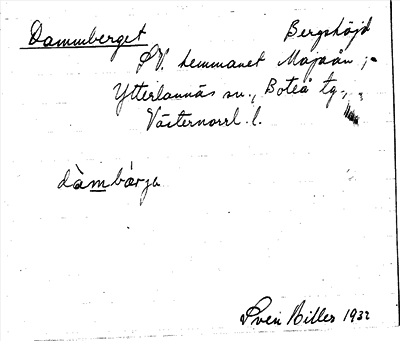 Dammberget Bergshöjd
S.V. hemmanet Majaån,
Ytterlannäs sn., Boteå tg.,
Västernorrl. l.
dàmbärja
Sven Hiller 1932